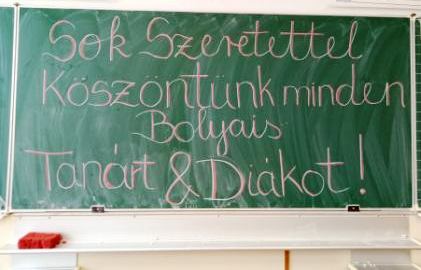 Sok Szeretettel
Köszöntünk minden
Bolyais
Tanárt & Diákot!